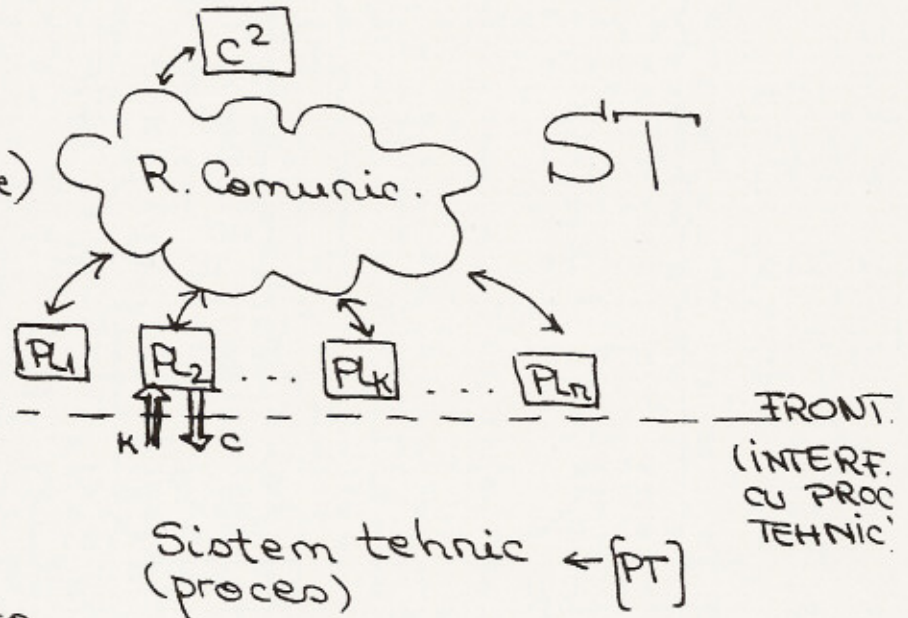 C²
e)
R. Comunic.
ST
PL1
PL2 .... PLk .... PLn
FRONT.
K C
(INTERF.
CU PROC
TEHNIC
Sistem tehnic ← [PT]
(proces)